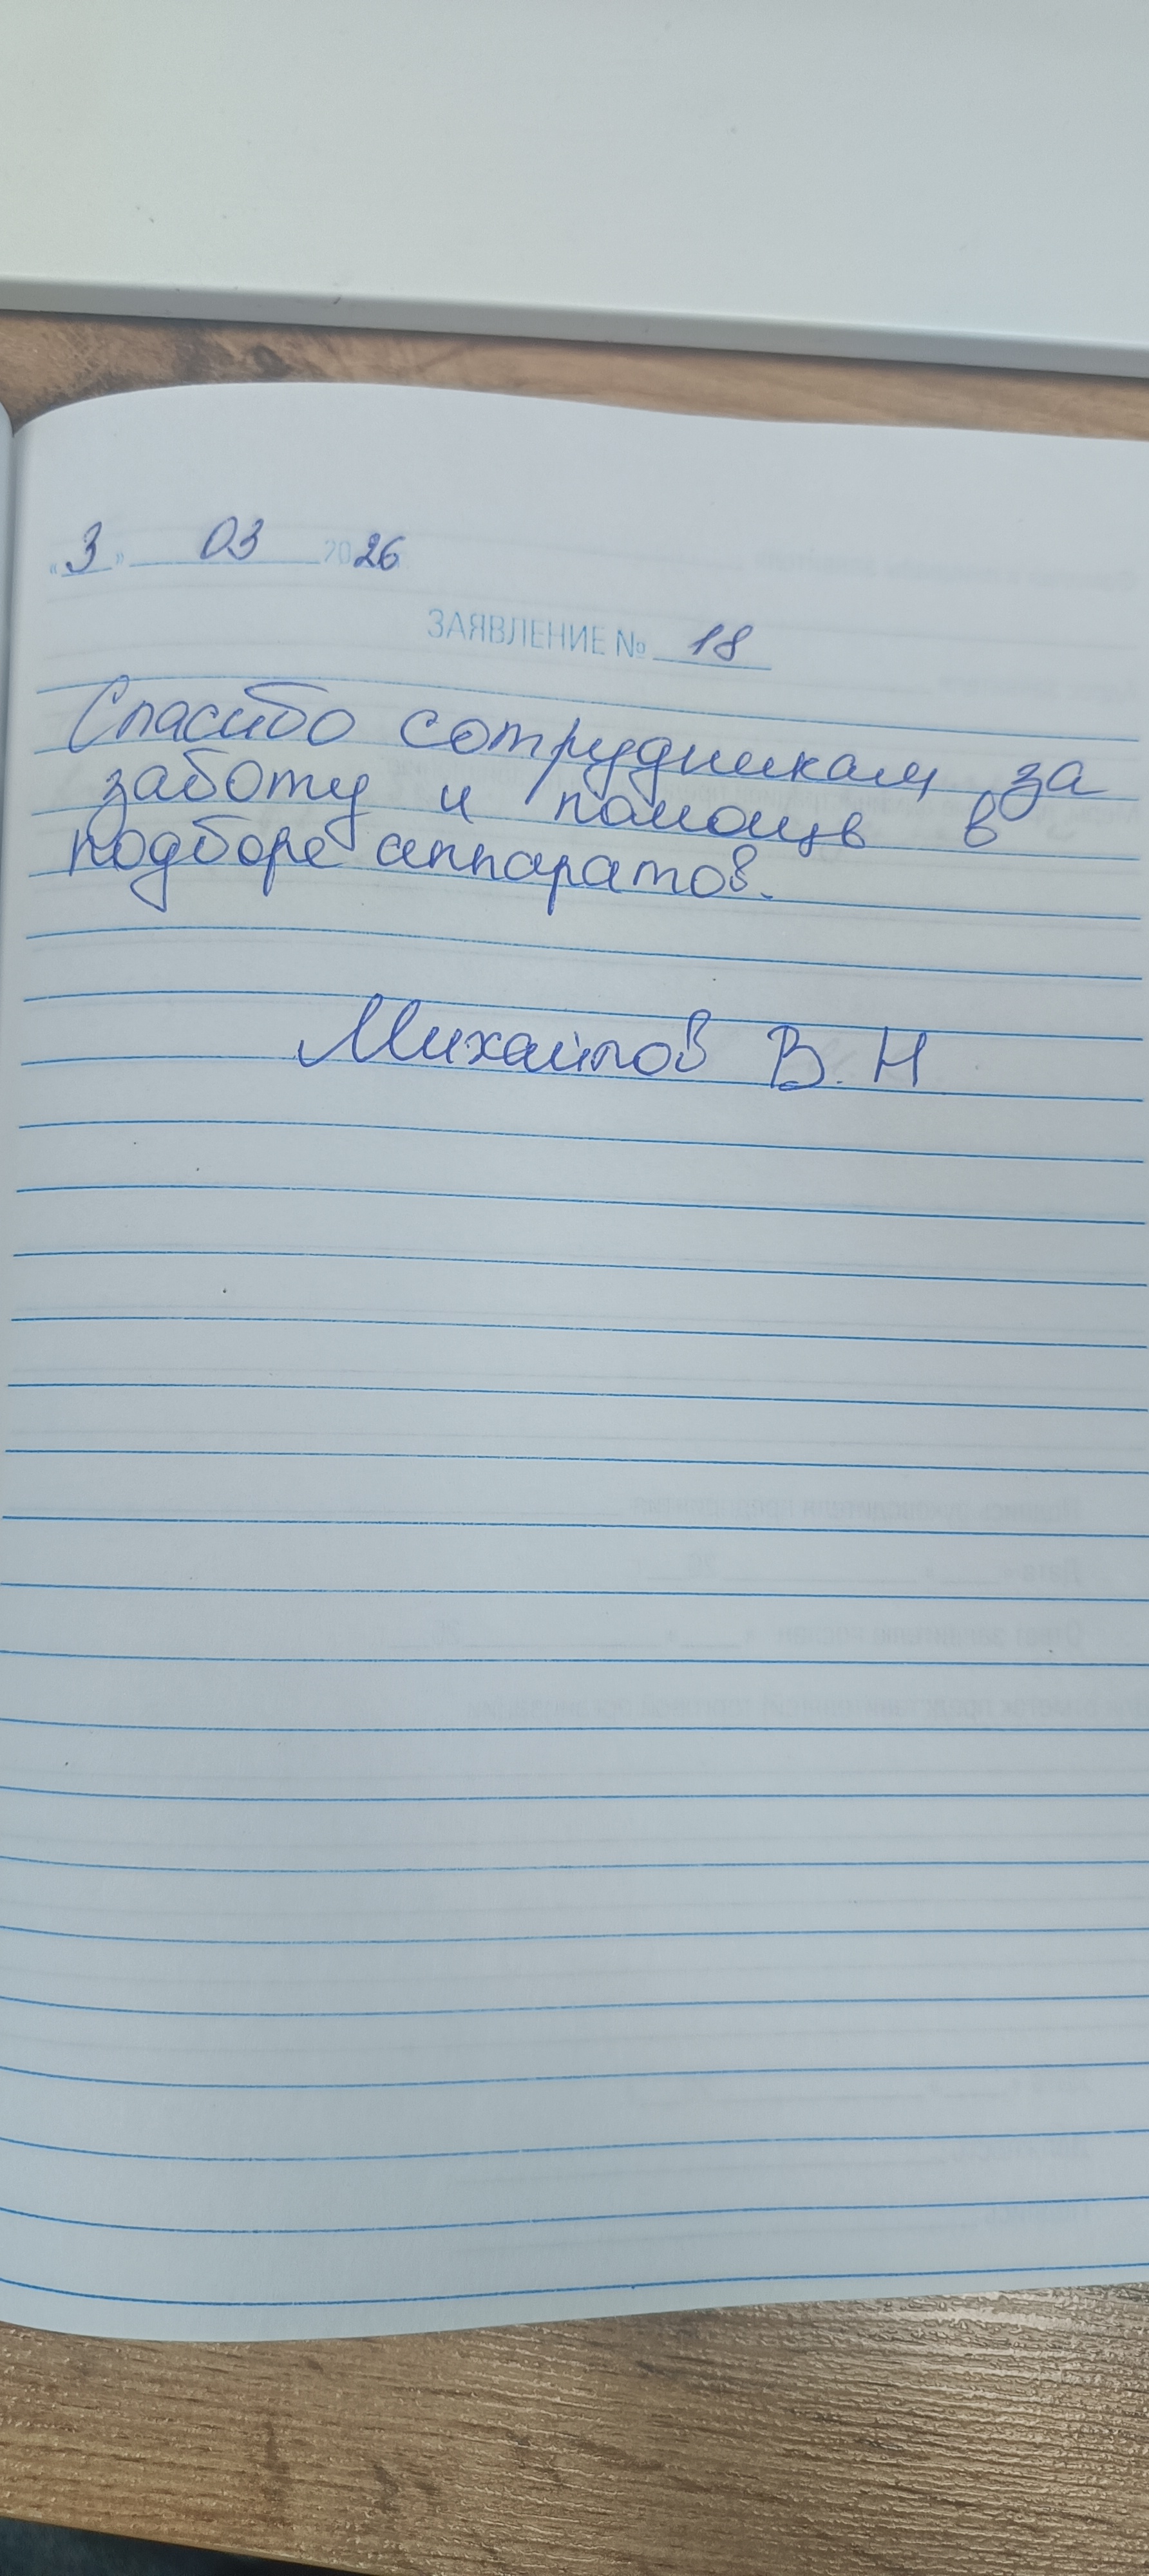 «3» 03 2026
ЗАЯВЛЕНИЕ № 18
Спасибо сотрудникам за
заботу и помощь в
подборе аппаратов.
Михайлов В. Н